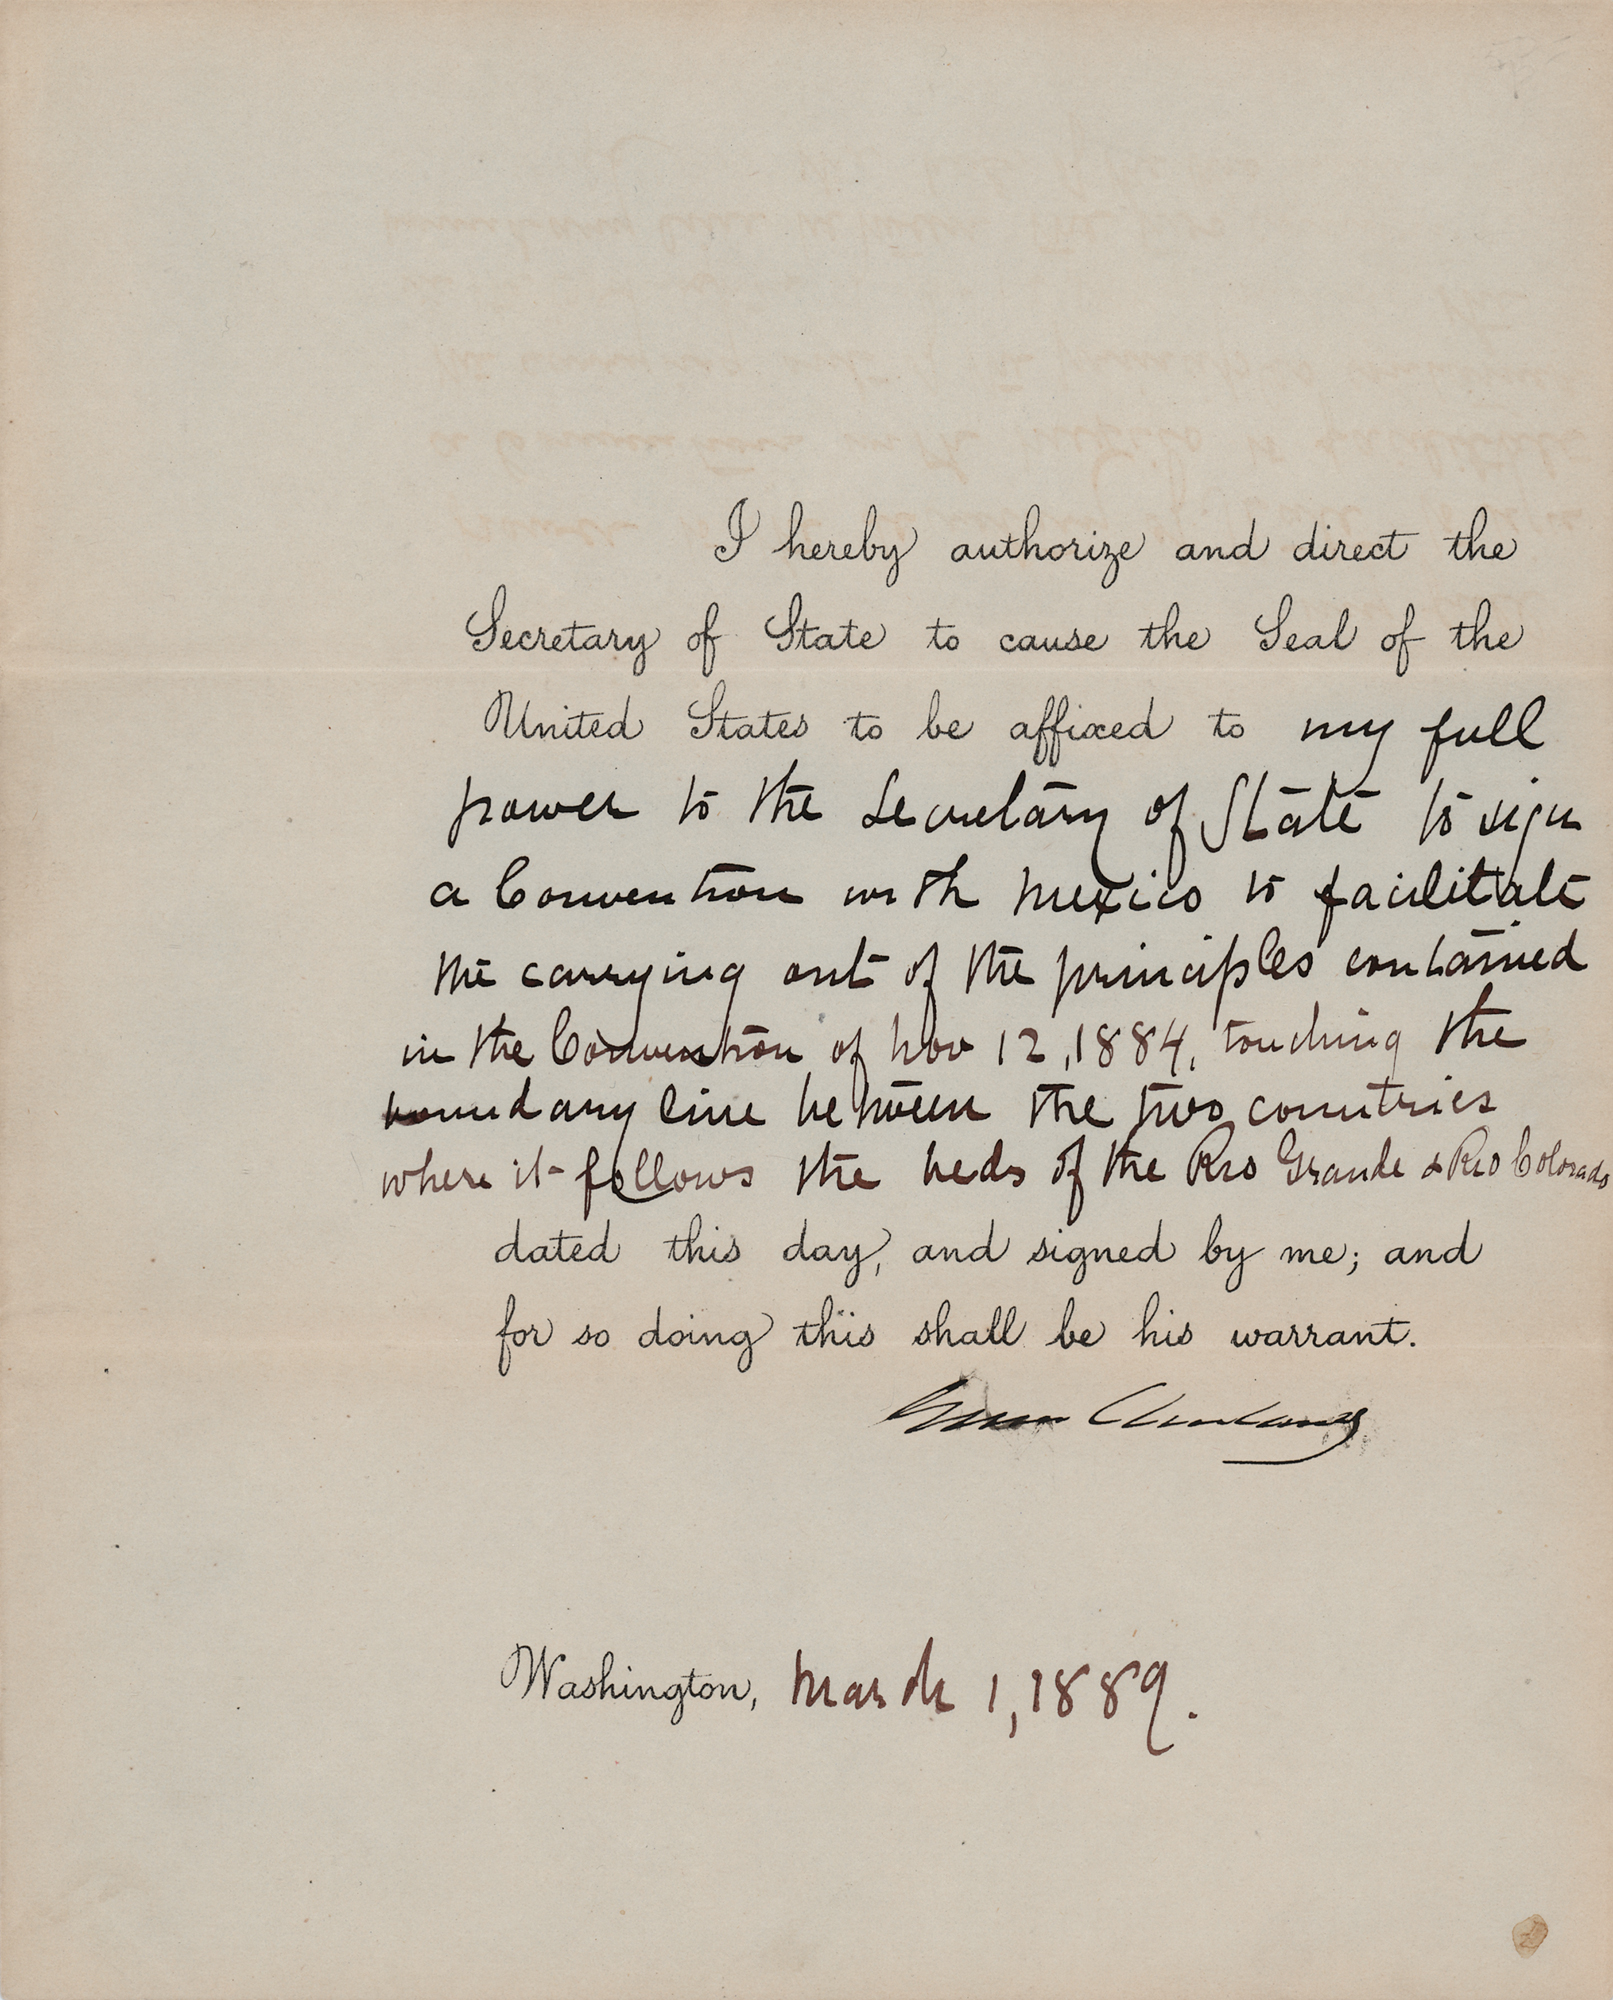 I hereby authorize and direct the
Secretary of State to cause the Seal of the
United States to be affixed to my full
power to the Secretary of State to sign
a Convention with Mexico to facilitate
the carrying out of the principles contained
in the Convention of Nov 12, 1884, touching the
boundary line between the two countries
where it follows the beds of the Rio Grande & Rio Colorado
dated this day, and signed by me; and
for so doing this shall be his warrant.
Grover Cleveland
Washington, March 1, 1889.